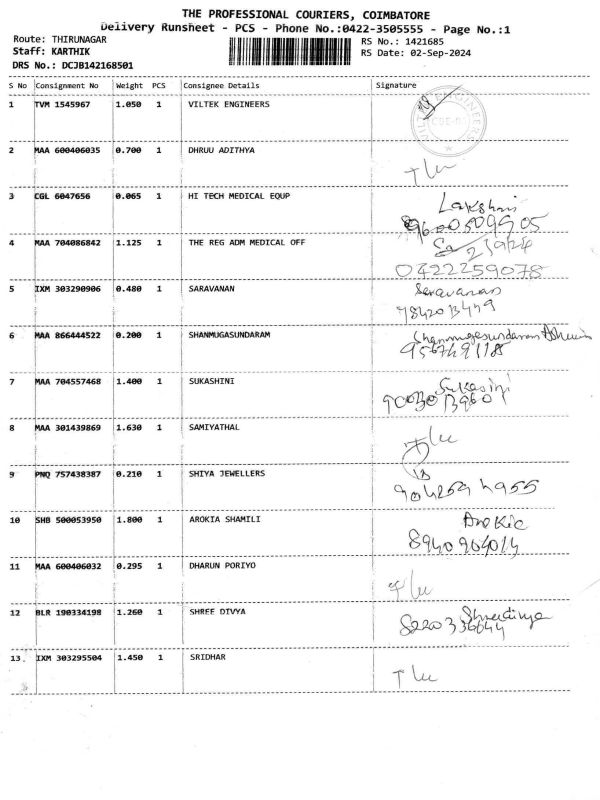 THE PROFESSIONAL COURIERS, COIMBATORE
Delivery Runsheet - PCS - Phone No.:0422-3505555 - Page No.:1
Route: THIRUNAGAR RS No.: 1421685
Staff: KARTHIK RS Date: 02-Sep-2024
DRS No.: DCJB142168501
S No Consignment No Weight PCS Consignee Details Signature
1 TVM 1545967 1.050 1 VILTEK ENGINEERS
2 MAA 600406035 0.700 1 DHRUU ADITHYA
3 CGL 6047656 0.065 1 HI TECH MEDICAL EQUP Lakshmi
9600509505
4 MAA 704086842 1.125 1 THE REG ADM MEDICAL OFF
04222259078
5 IXM 303290906 0.480 1 SARAVANAN Saravanan
6 MAA 866444522 0.200 1 SHANMUGASUNDARAM
7 MAA 704557468 1.400 1 SUKASHINI Sukasini
8 MAA 301439869 1.630 1 SAMIYATHAL
9 PNQ 757438387 0.210 1 SHIYA JEWELLERS
10 SHB 500053950 1.800 1 AROKIA SHAMILI Arokia
11 MAA 600406032 0.295 1 DHARUN PORIYO
12 BLR 190334198 1.260 1 SHREE DIVYA Shreedivya
13 IXM 303295504 1.450 1 SRIDHAR